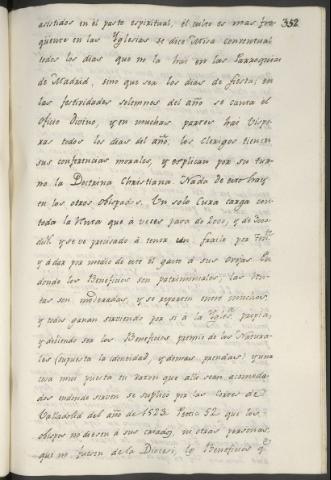 asistidos en el pasto espiritual, el culto es mas fre 352
qüente en las Yglesias se dice Misa conventual
todos los dias que no la hai en las Parroquias
de Madrid, sino que sea los dias de fiesta; en
las festividades solemnes del año se canta el
Oficio Divino, y en muchas partes hai Vispe
ras todos los dias del año; los Clerigos tienen
sus conferencias morales, y explican por su tur
no la Doctrina Christiana Nada de esto hay
en los otros obispados. Un solo Cura carga con
toda la Renta que à veces pasa de 2000, y de
y se ve precisado à tener un fraile por
y à dar por medio de este el gasto à sus ovejas En
donde los Beneficios son patrimoniales; las Ren
tas son moderadas, y se reparten entre muchos,
y todos ganan sirviendo por si à la Ygles.ª propia,
y debiendo ser los Beneficios premio de los Natura
les (supuesta la idoneidad, y demas prendas) y una
cosa mui puesta en razon que alli sean acomoda
dos en donde sirven se suplicó por las Cortes de
Valladolid del año de 1523 Petic.n 52 que los
obispos no diesen à sus criados, ni otras personas,
que no fuesen de la Diocesi, los Beneficios q.e